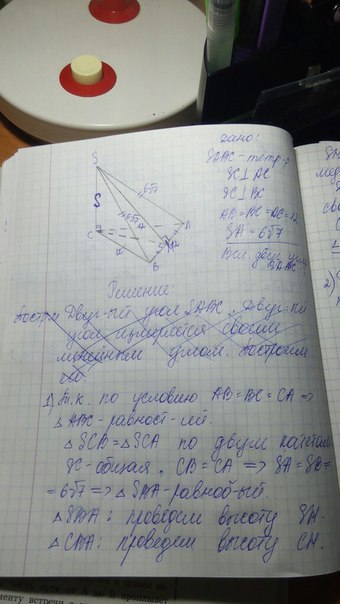 Дано:
SABC - тетр-р
SC⊥AC
SC⊥BC
AB=BC=AC=12
SA=6√7
SABC
S
6√7
6√7
S
A
C
B
12
Решение:
Двугр-ый угол SABC. Двугр-ый
угол измеряется своим
линейным углом. Построим
его.
1) Т.к. по условию AB=BC=CA =>
△ABC - равност-ий.
△SCB=△SCA по двум катетам
SC-общая, CB=CA => SA=SB=
=6√7 => △SBA-равноб-ый.
△SBA: проведем высоту SH.
△CBA: проведем высоту CH.
2)
менту встречи А до В проплывет